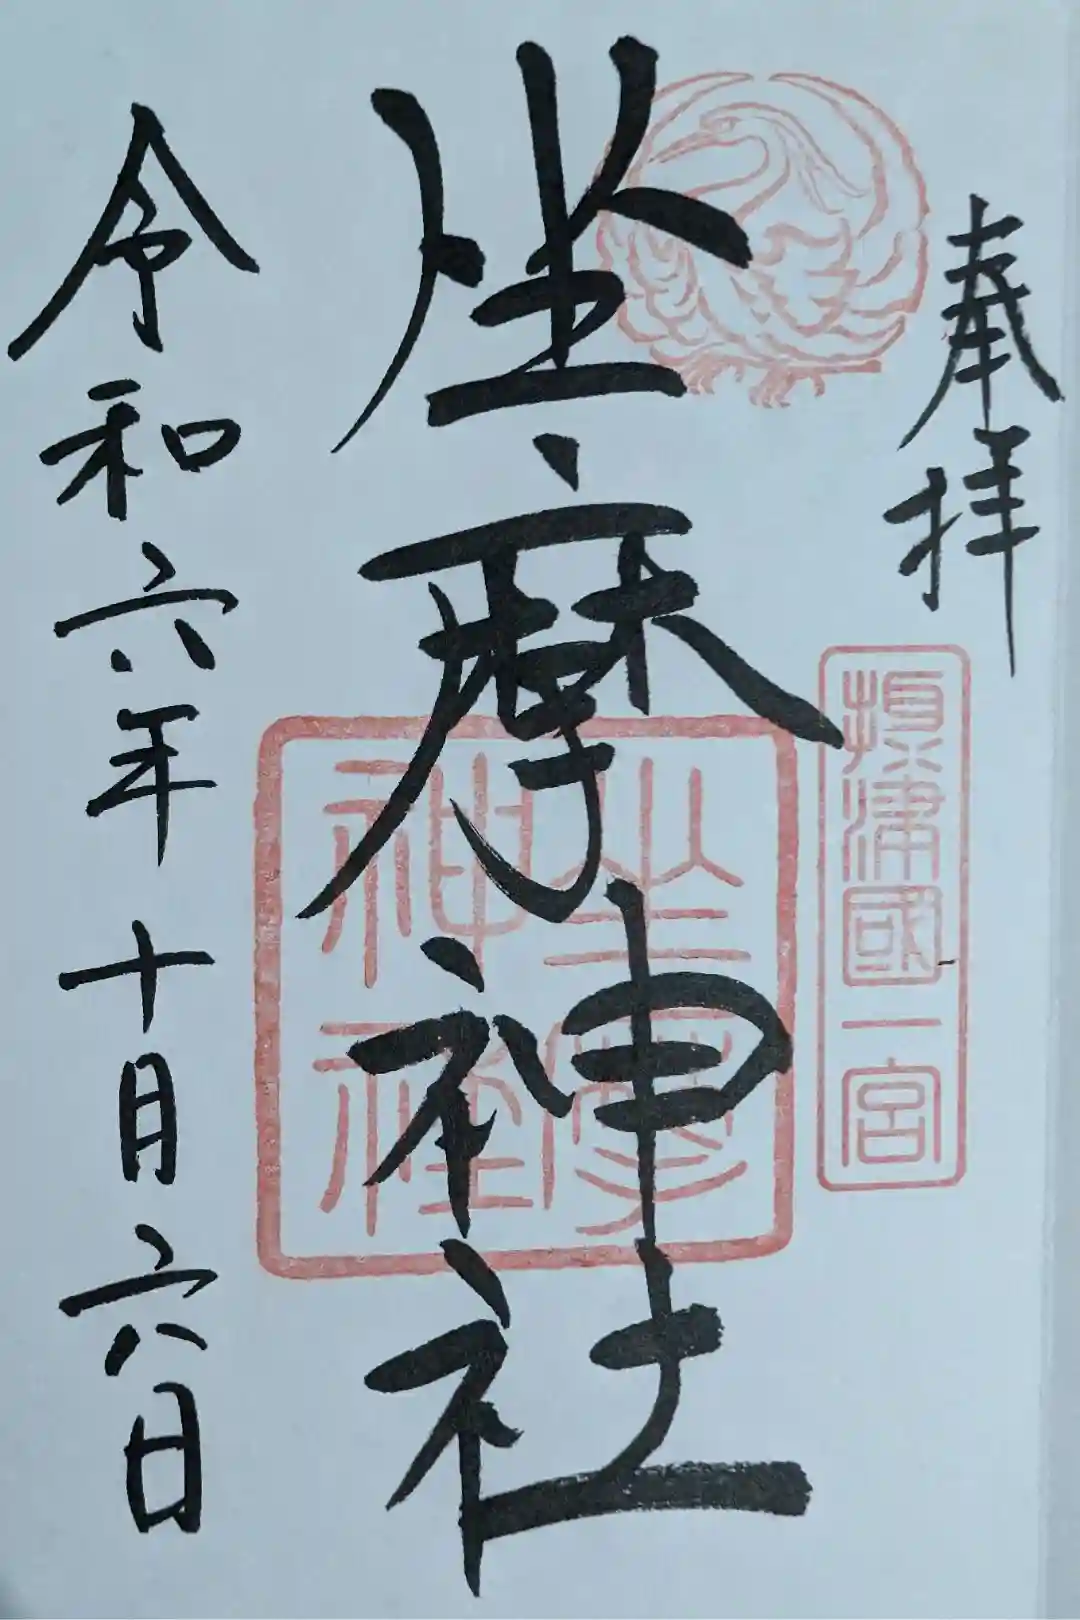 奉拝
攝津國一宮
坐摩神社
坐摩神社
令和六年十月六日